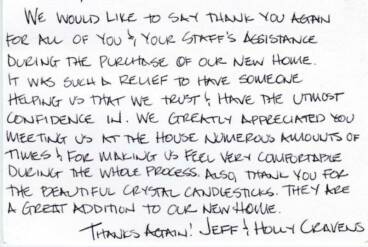 WE WOULD LIKE TO SAY THANK YOU AGAIN
FOR ALL OF YOU & YOUR STAFF'S ASSISTANCE
DURING THE PURCHASE OF OUR NEW HOME.
IT WAS SUCH A RELIEF TO HAVE SOMEONE
HELPING US THAT WE TRUST & HAVE THE UTMOST
CONFIDENCE IN. WE GREATLY APPRECIATED YOU
MEETING US AT THE HOUSE NUMEROUS AMOUNTS OF
TIMES & FOR MAKING US FEEL VERY COMFORTABLE
DURING THE WHOLE PROCESS. ALSO, THANK YOU FOR
THE BEAUTIFUL CRYSTAL CANDLESTICKS. THEY ARE
A GREAT ADDITION TO OUR NEW HOME.
THANKS AGAIN! JEFF & HOLLY CRAVENS